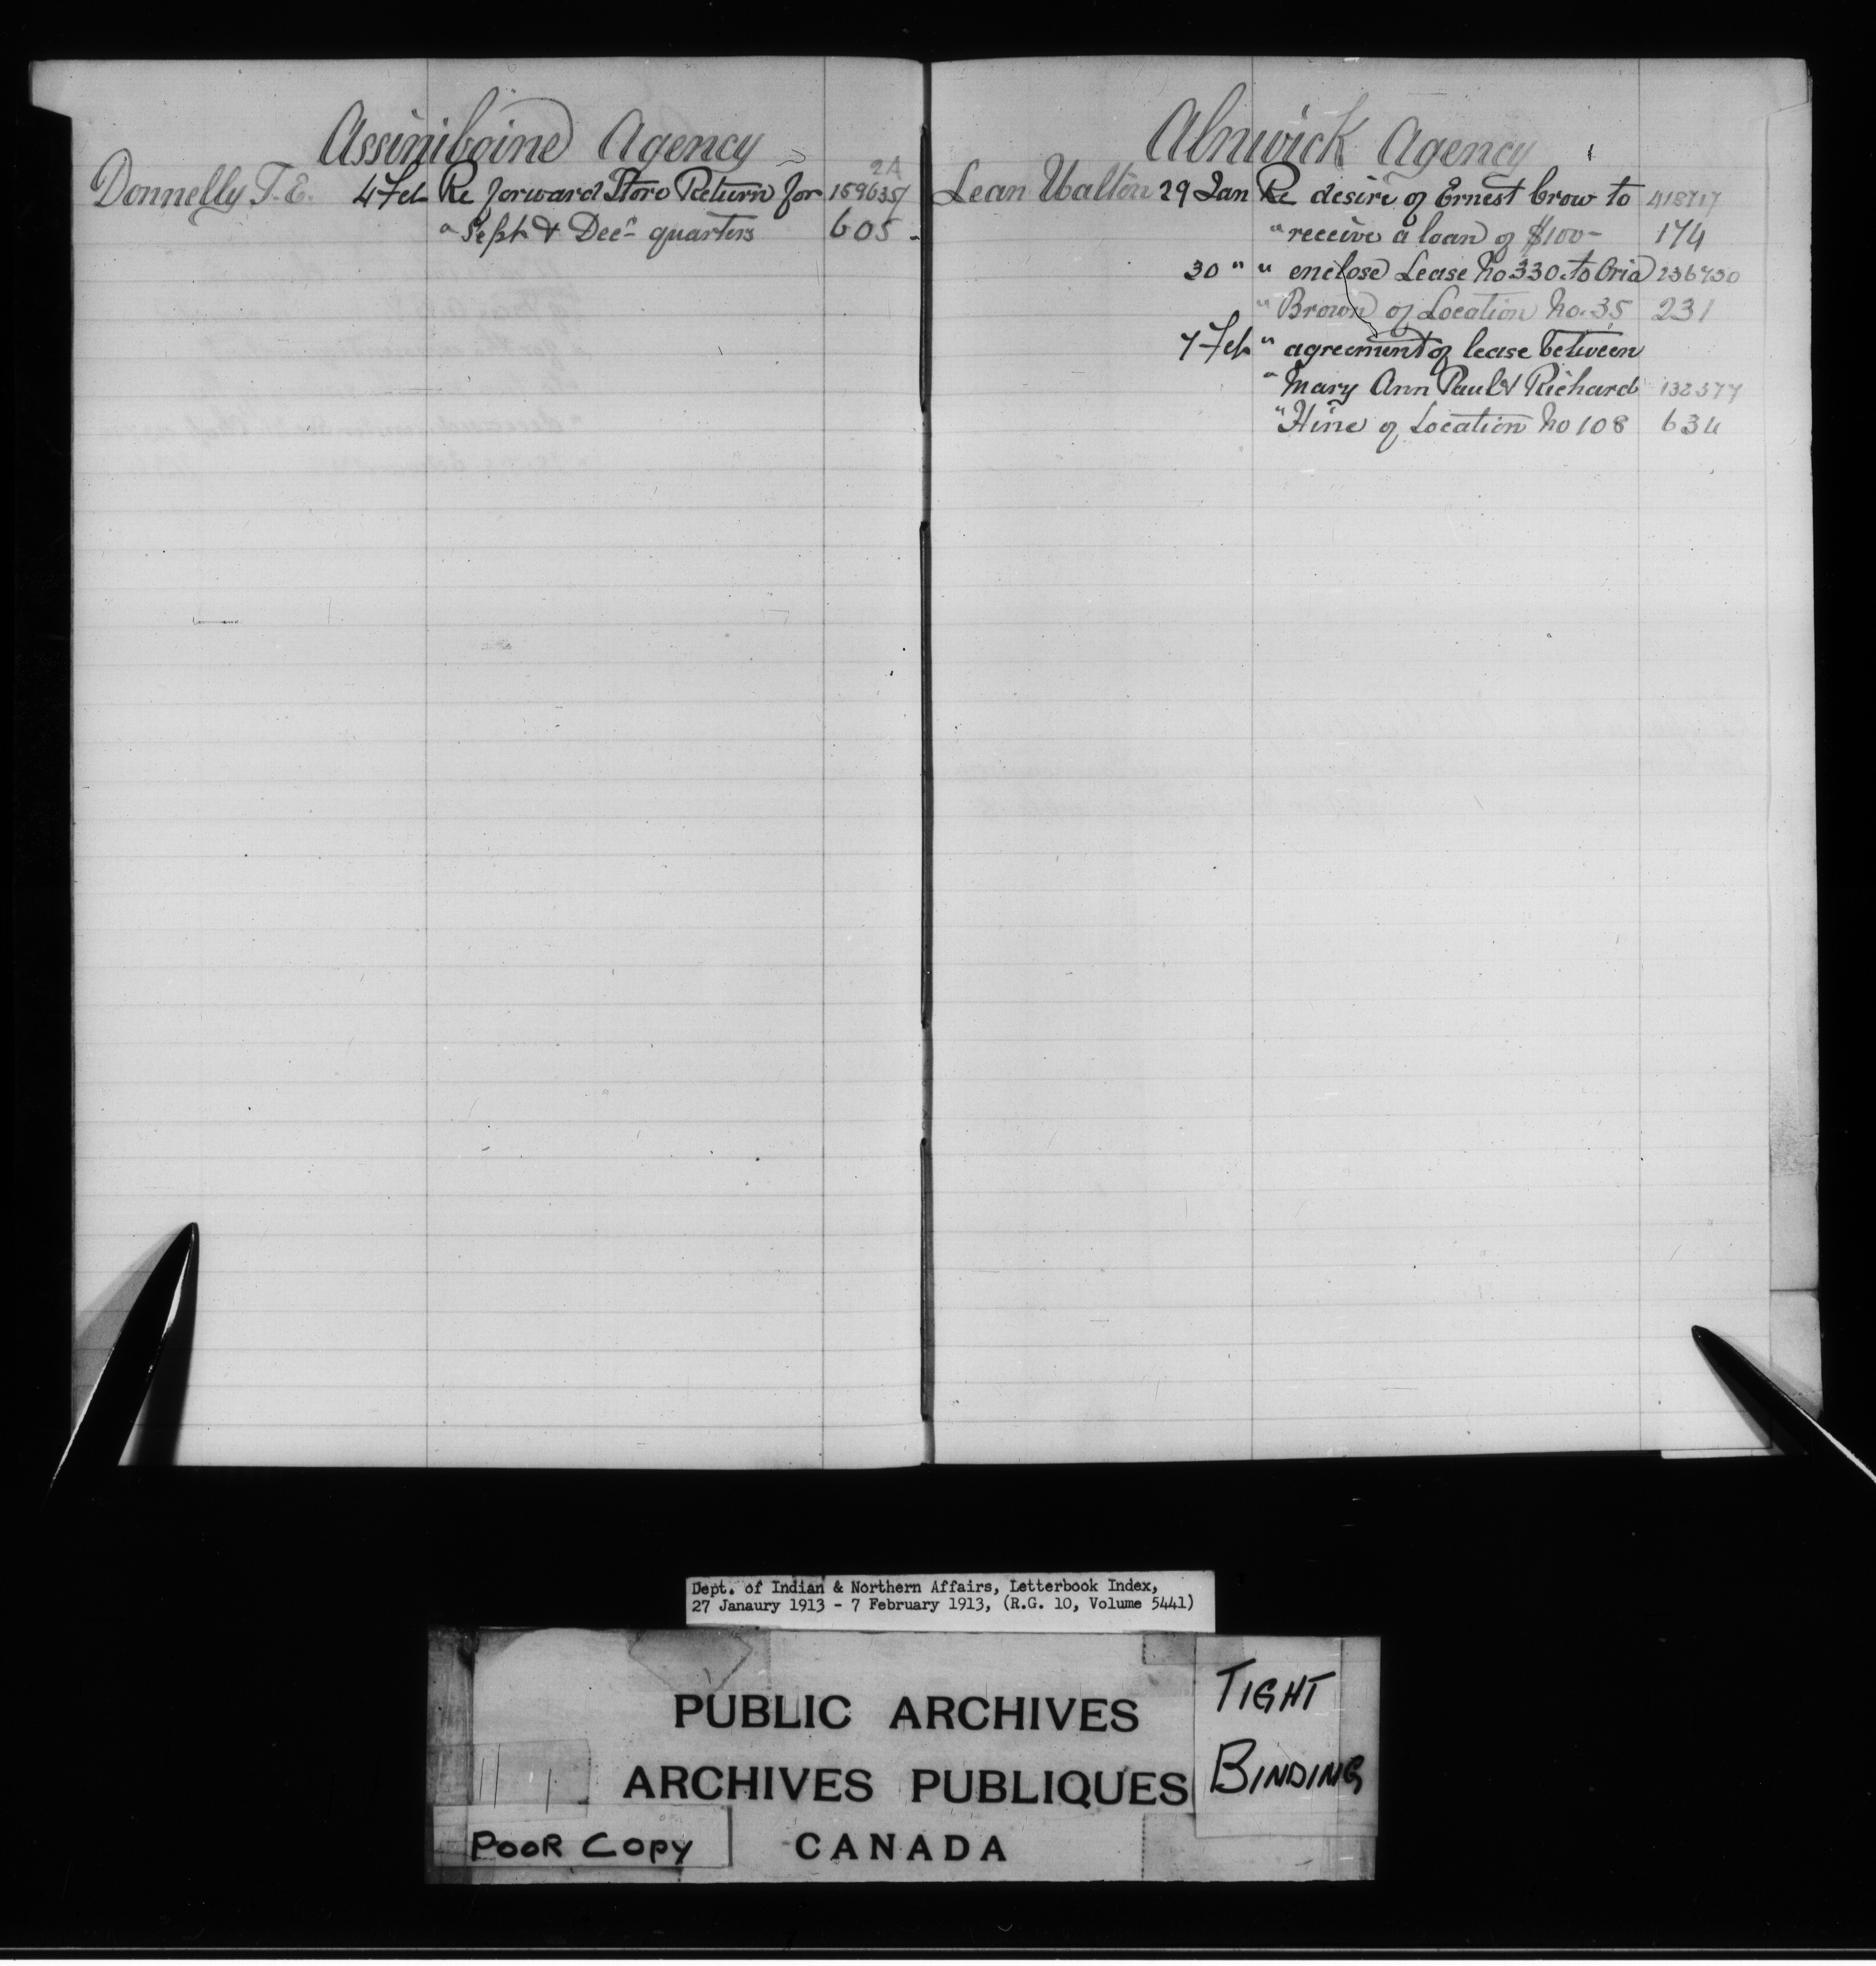 Assiniboine Agency
2A
Donnelly T. E. 4 Feb Re forward Store Return for 159635/
" Sept & Dec- quarters 605 -
Alnwick Agency 1
Lean Walton 29 Jan Re desire of Ernest Crow to 418717
" receive a loan of $100- 174
30 " " enclose Lease No 330 to Oria 236730
" Brown of Location No. 35 231
7 Feb " agreement of lease between
" Mary Ann Paul & Richard 132377
" Hine of Location No 108 634
Dept. of Indian & Northern Affairs, Letterbook Index,
27 Janaury 1913 - 7 February 1913, (R.G. 10, Volume 5441)
PUBLIC ARCHIVES
ARCHIVES PUBLIQUES
CANADA
TIGHT
BINDING
POOR COPY